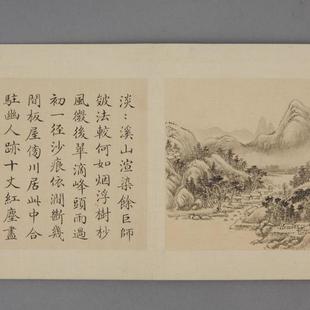 淡〻溪山渲染餘巨師
皴法較何如烟浮樹杪
風微後翠滴峰頭雨過
初一徑沙痕依澗斷幾
間板屋傍川居此中合
駐幽人跡十丈紅塵盡